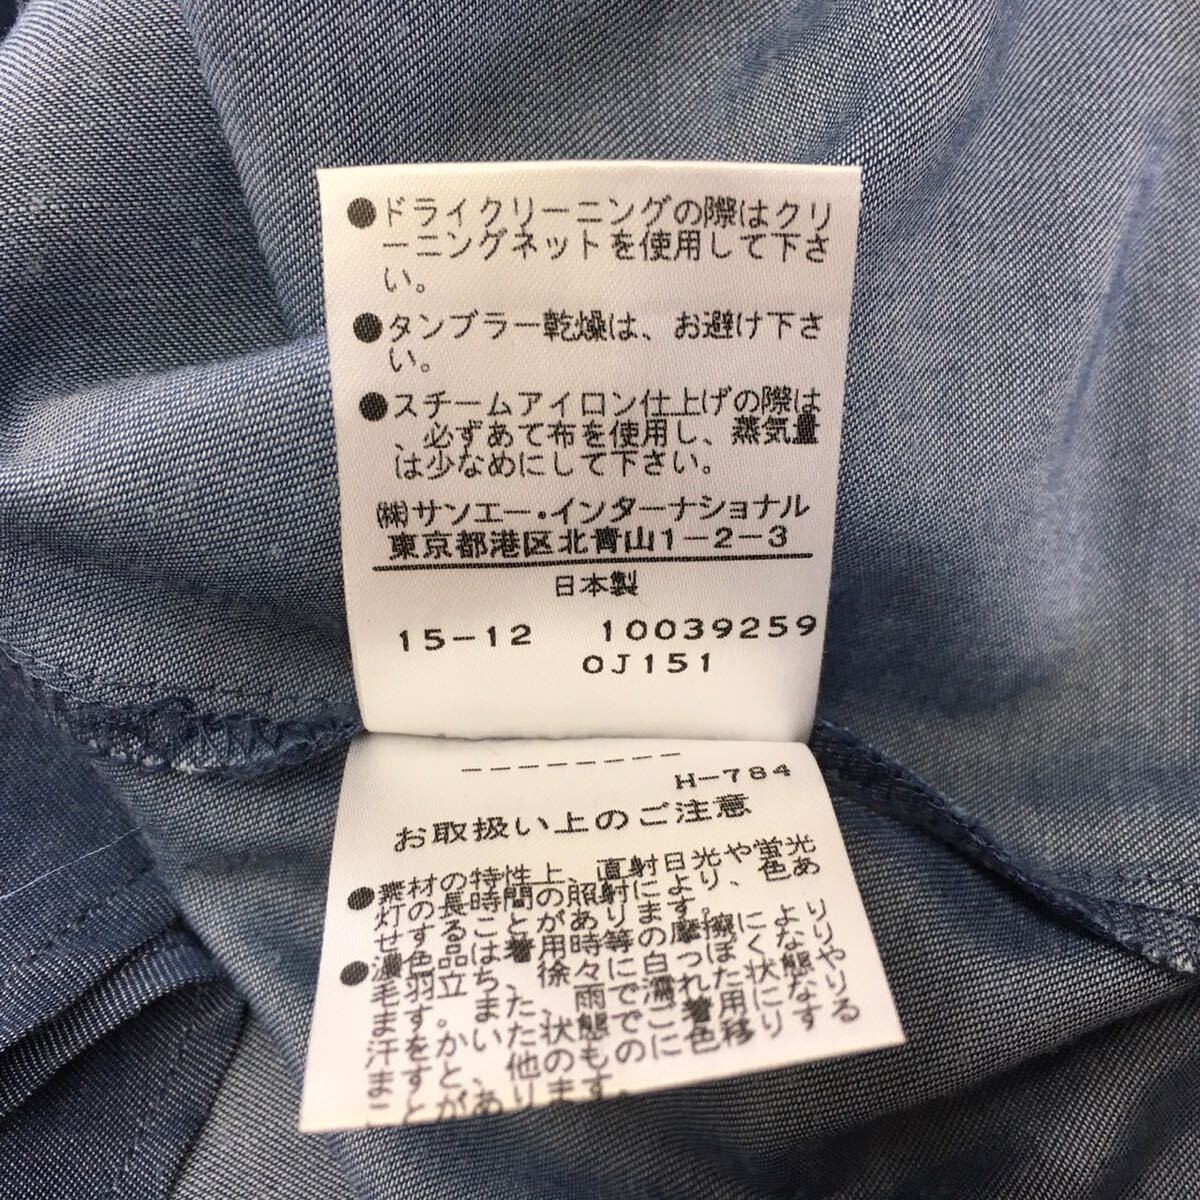 ●ドライクリーニングの際はクリ
ーニングネットを使用して下さ
い。
●タンブラー乾燥は、お避け下さ
い。
●スチームアイロン仕上げの際は
、必ずあて布を使用し、蒸気量
は少なめにして下さい。
㈱サンエー・インターナショナル
東京都港区北青山1-2-3
日本製
15-12 10039259
0J151
--------
H-784
お取扱い上のご注意
●素材の特性上、直射日光や蛍光
灯の長時間の照射により、色あ
せすることがあります。
●濃色品は着用時等の摩擦により
毛羽立ち、徐々に白っぽくなり
ます。また、雨で濡れた状態や
汗をかいた状態でご着用になり
ますと、他のものに色移りする
ことがあります。